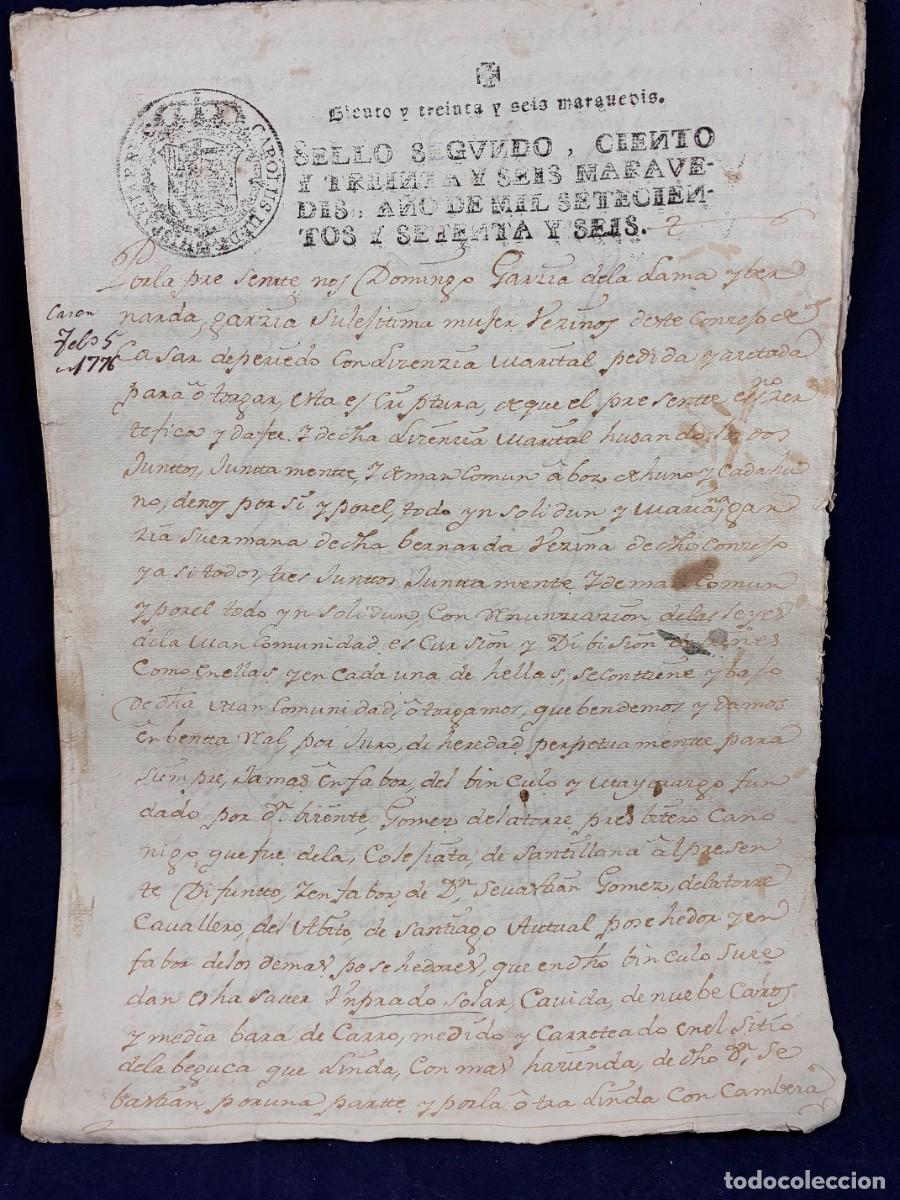 Siento y treinta y seis marauedis.
SELLO SEGVNDO, CIENTO
Y TREINTA Y SEIS MARAVE-
DIS, AÑO DE MIL SETECIEN-
TOS Y SETENTA Y SEIS.
CAROLVS III D G HISP
Porla presentte nos Domingo Garzia dela Lama y ber
narda, garzia su lejitima mujer Vezinos deste Conzejo de
Casar deperiedo Con Lizenzia Marital pedida y azetada
para ô torgar, esta escriptura, de que el presentte es.no zer
tefica y da fee. Y de dha Lizenzia Marital husando los dos
Junttos, Juntta mentte, Y de man Comun â boz de huno y Cada hu
no, denos por si y porel, todo yn solidun y Mariana gar
zia su ermana de dha bernarda Vezina de dho Conzejo
y asi todos, tres Junttos Juntta mente Y de man Comun
y porel todo yn solidun, Con Renunziazion delas leyes
dela Man Comunidad, es Cursion y Dibision de vienes
Como en ellas, y en Cada una de hellas, se Conttiene y bajo
de dha Man Comunidad, ôtorgamos, que bendemos y damos
en bentta Real, por Juro, de heredad perpetuamentte para
siempre, Jamas en fabor, del binculo y Mayorazgo fun
dado por dn. bizente, Gomez dela torre presbitero Cano
nigo que fue dela, Colejiata, de Santillana âl presen
te Difuntto, Y en fabor, de Dn. Sevastian Gomez, dela torre
Cavallero, del Abito, de Santiago Auttual posehedor y en
fabor delos demas posehedores, que en dho binculo suze
dan es ha saver Un prado solar, Cavida, de nuebe Carros
y media bara de Carro, medido y Carreteado en el sitio
dela beguca que Linda, Con mas hazienda, de dho Dn. Se
bastian por una partte y porla ôtra Linda Con Cambera
Cason
Feb.o 5
1776
todocoleccion